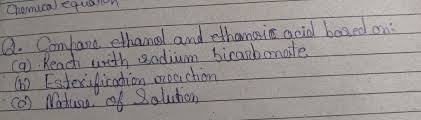 Chemical equation
Q. Compare ethanol and ethanoic acid based on:
(a) React with sodium bicarbonate
(b) Esterification reaction
(c) Nature of Solution